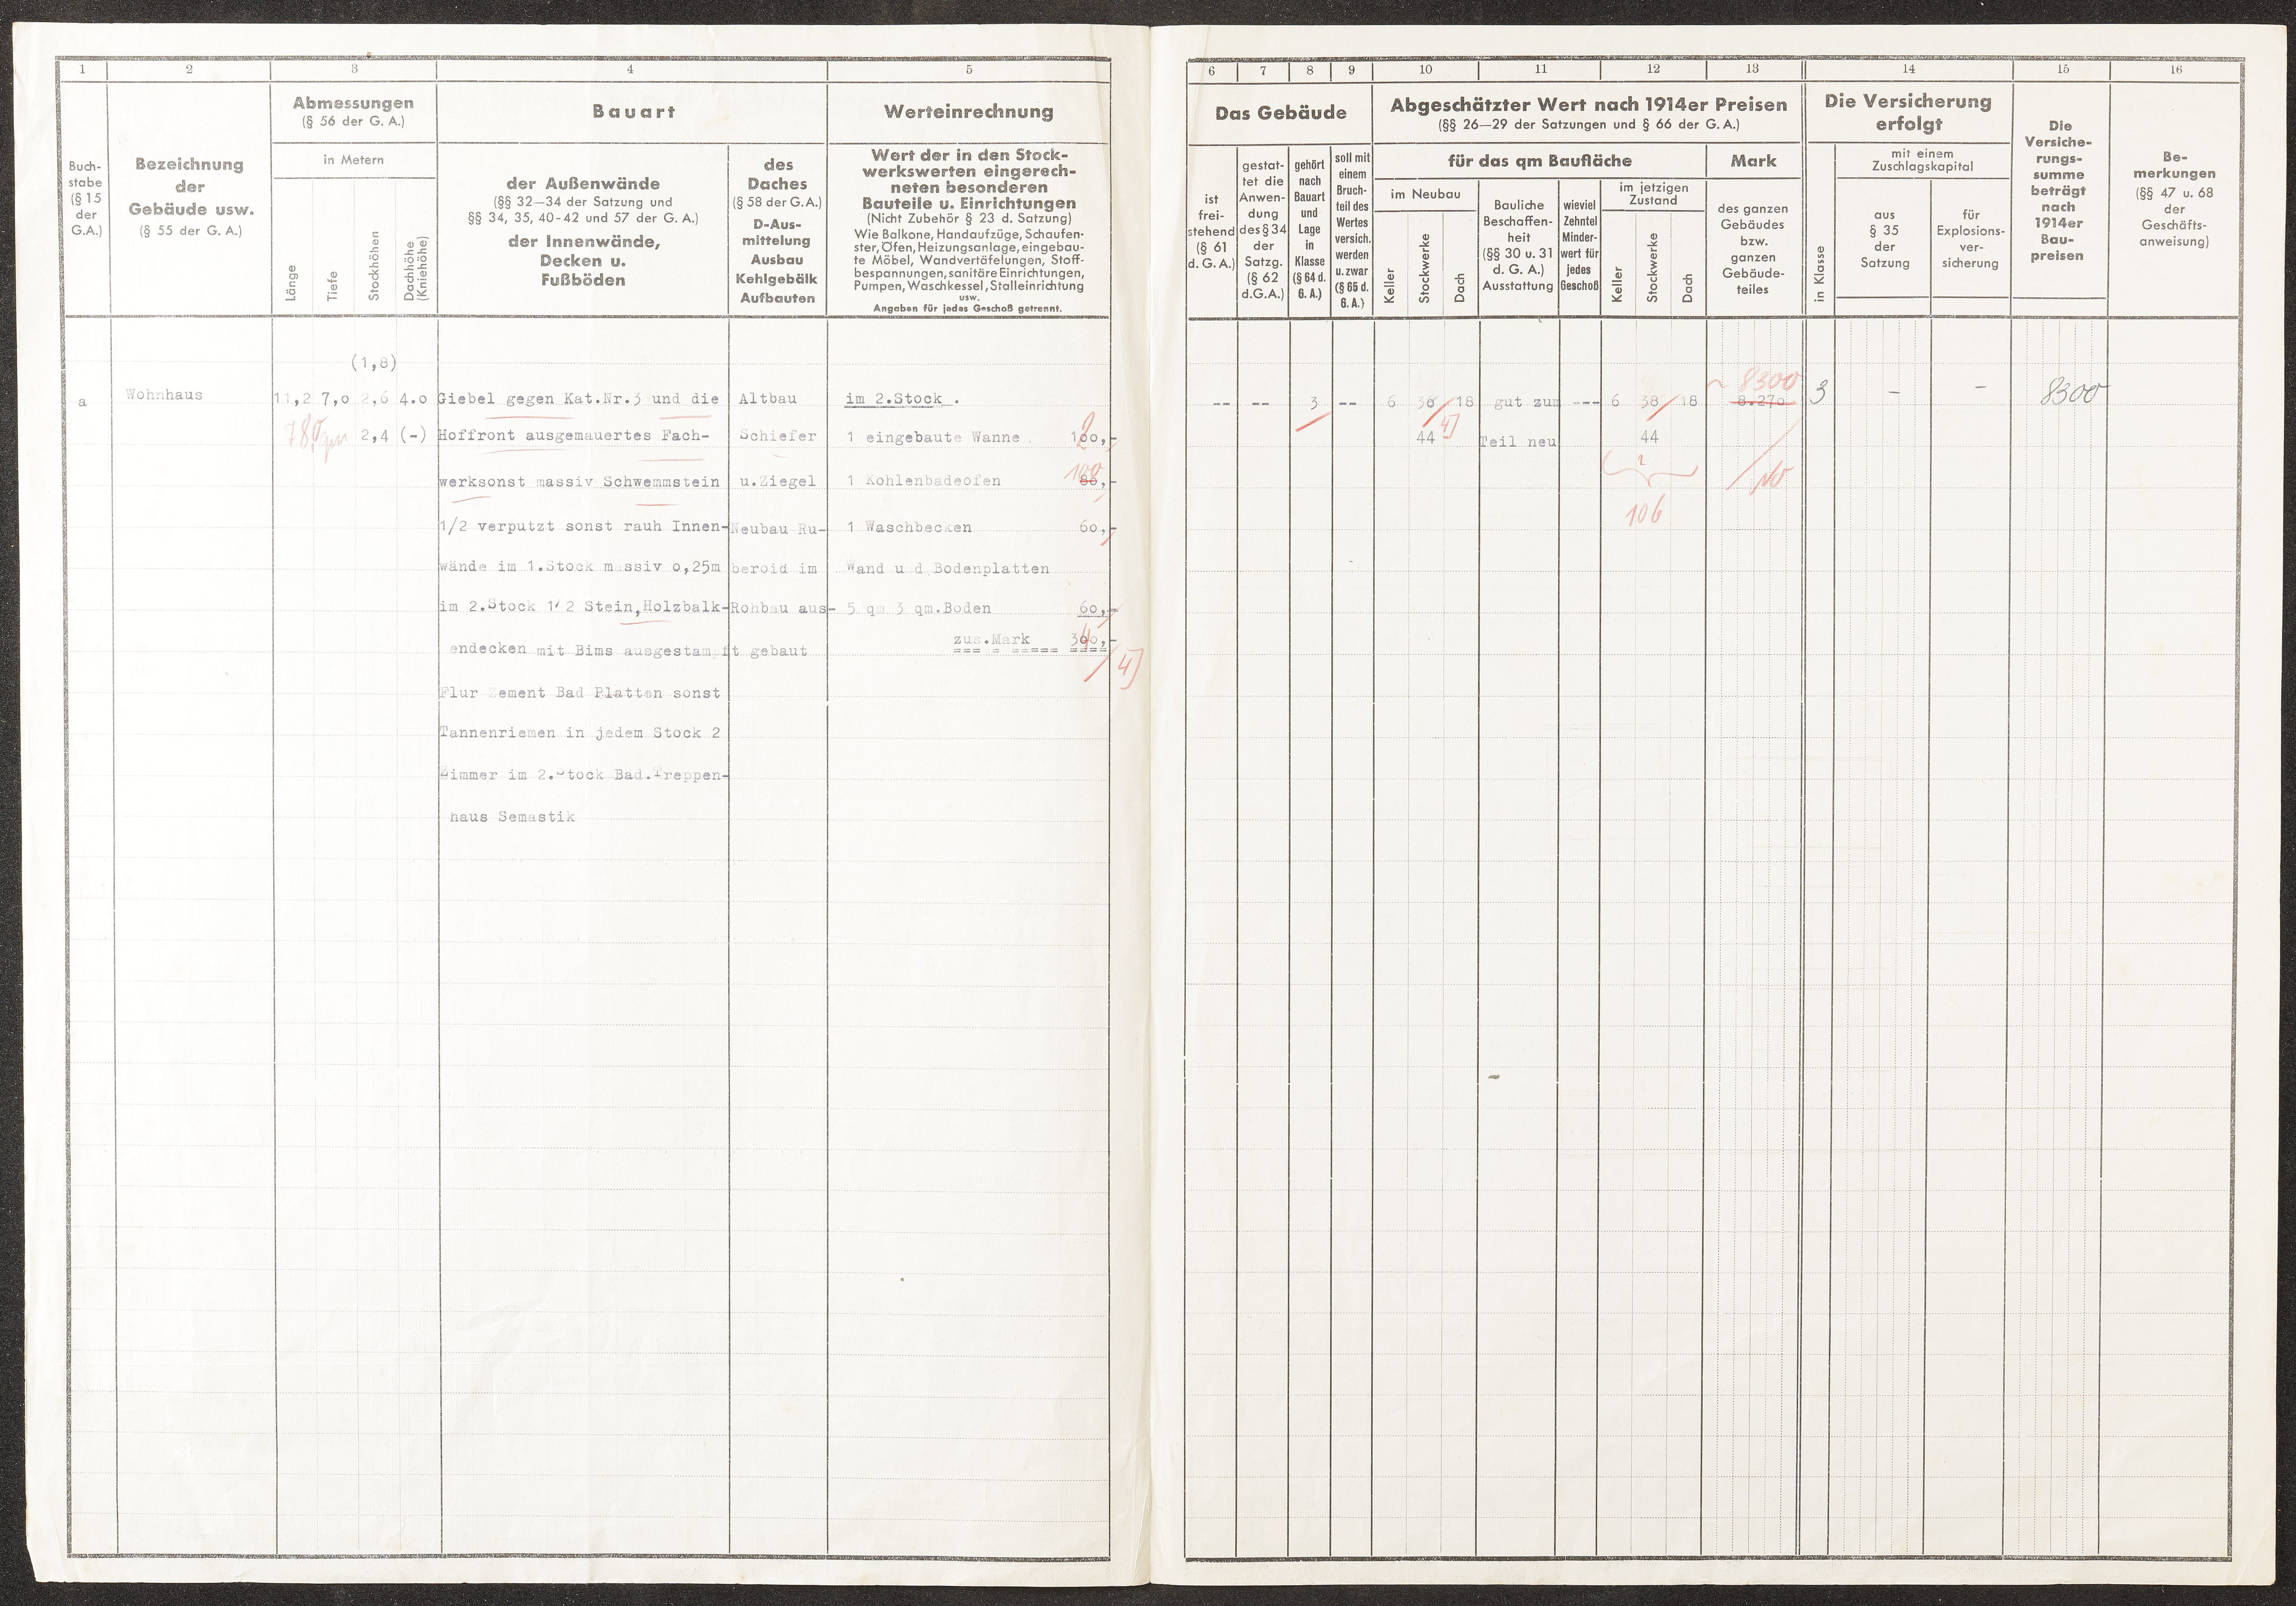 1 2 3 4 5
Buch-
stabe
(§ 15
der
G.A.)
Bezeichnung
der
Gebäude usw.
(§ 55 der G. A.)
Abmessungen
(§ 56 der G. A.)
in Metern
Länge
Tiefe
Stockhöhen
Dachhöhe
(Kniehöhe)
Bauart
der Außenwände
(§§ 32—34 der Satzung und
§§ 34, 35, 40-42 und 57 der G. A.)
der Innenwände,
Decken u.
Fußböden
des
Daches
(§ 58 der G.A.)
D-Aus-
mittelung
Ausbau
Kehlgebälk
Aufbauten
Werteinrechnung
Wert der in den Stock-
werkswerten eingerech-
neten besonderen
Bauteile u. Einrichtungen
(Nicht Zubehör § 23 d. Satzung)
Wie Balkone, Handaufzüge, Schaufen-
ster, Öfen, Heizungsanlage, eingebau-
te Möbel, Wandvertäfelungen, Stoff-
bespannungen, sanitäre Einrichtungen,
Pumpen, Waschkessel, Stalleinrichtung
usw.
Angaben für jedes Geschoß getrennt.
(1,8)
a
Wohnhaus
11,2 7,0 2,6 4.0
78 qm 2,4 (-)
Giebel gegen Kat.Nr.3 und die
Hoffront ausgemauertes Fach-
werksonst massiv Schwemmstein
1/2 verputzt sonst rauh Innen-
wände im 1.Stock massiv 0,25m
im 2.Stock 1/2 Stein,Holzbalk-
endecken mit Bims ausgestampft
Flur Zement Bad Platten sonst
Tannenriemen in jedem Stock 2
Zimmer im 2.Stock Bad.Treppen-
haus Semastik
Altbau
Schiefer
u.Ziegel
Neubau Ru-
beroid im
Rohbau aus-
gebaut
im 2.Stock.
1 eingebaute Wanne 100,-
2
1 Kohlenbadeofen 80,-
100
1 Waschbecken 60,-
Wand und Bodenplatten
5 qm 3 qm.Boden 60,-
zus.Mark 300,-
4
4]
6 7 8 9 10 11 12 13 14 15 16
Das Gebäude
ist
frei-
stehend
(§ 61
d. G. A.)
gestat-
tet die
Anwen-
dung
des § 34
der
Satzg.
(§ 62
d.G.A.)
gehört
nach
Bauart
und
Lage
in
Klasse
(§ 64 d.
G. A.)
soll mit
einem
Bruch-
teil des
Wertes
versich.
werden
u. zwar
(§ 65 d.
G. A.)
Abgeschätzter Wert nach 1914er Preisen
(§§ 26—29 der Satzungen und § 66 der G. A.)
für das qm Baufläche
im Neubau
Keller
Stockwerke
Dach
Bauliche
Beschaffen-
heit
(§§ 30 u. 31
d. G. A.)
Ausstattung
wieviel
Zehntel
Minder-
wert für
jedes
Geschoß
im jetzigen
Zustand
Keller
Stockwerke
Dach
Mark
des ganzen
Gebäudes
bzw.
ganzen
Gebäude-
teiles
Die Versicherung
erfolgt
in Klasse
mit einem
Zuschlagskapital
aus
§ 35
der
Satzung
für
Explosions-
ver-
sicherung
Die
Versiche-
rungs-
summe
beträgt
nach
1914er
Bau-
preisen
Be-
merkungen
(§§ 47 u. 68
der
Geschäfts-
anweisung)
8300
-- -- 3 -- 6 38 18 gut zum --- 6 38 18 8.270 3 - - 8300
44 4] Teil neu 44
106